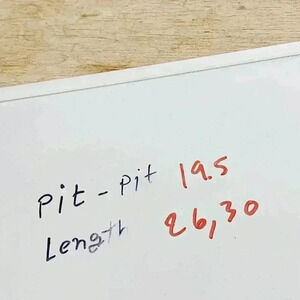 pit - pit 19.5
Length 26,30